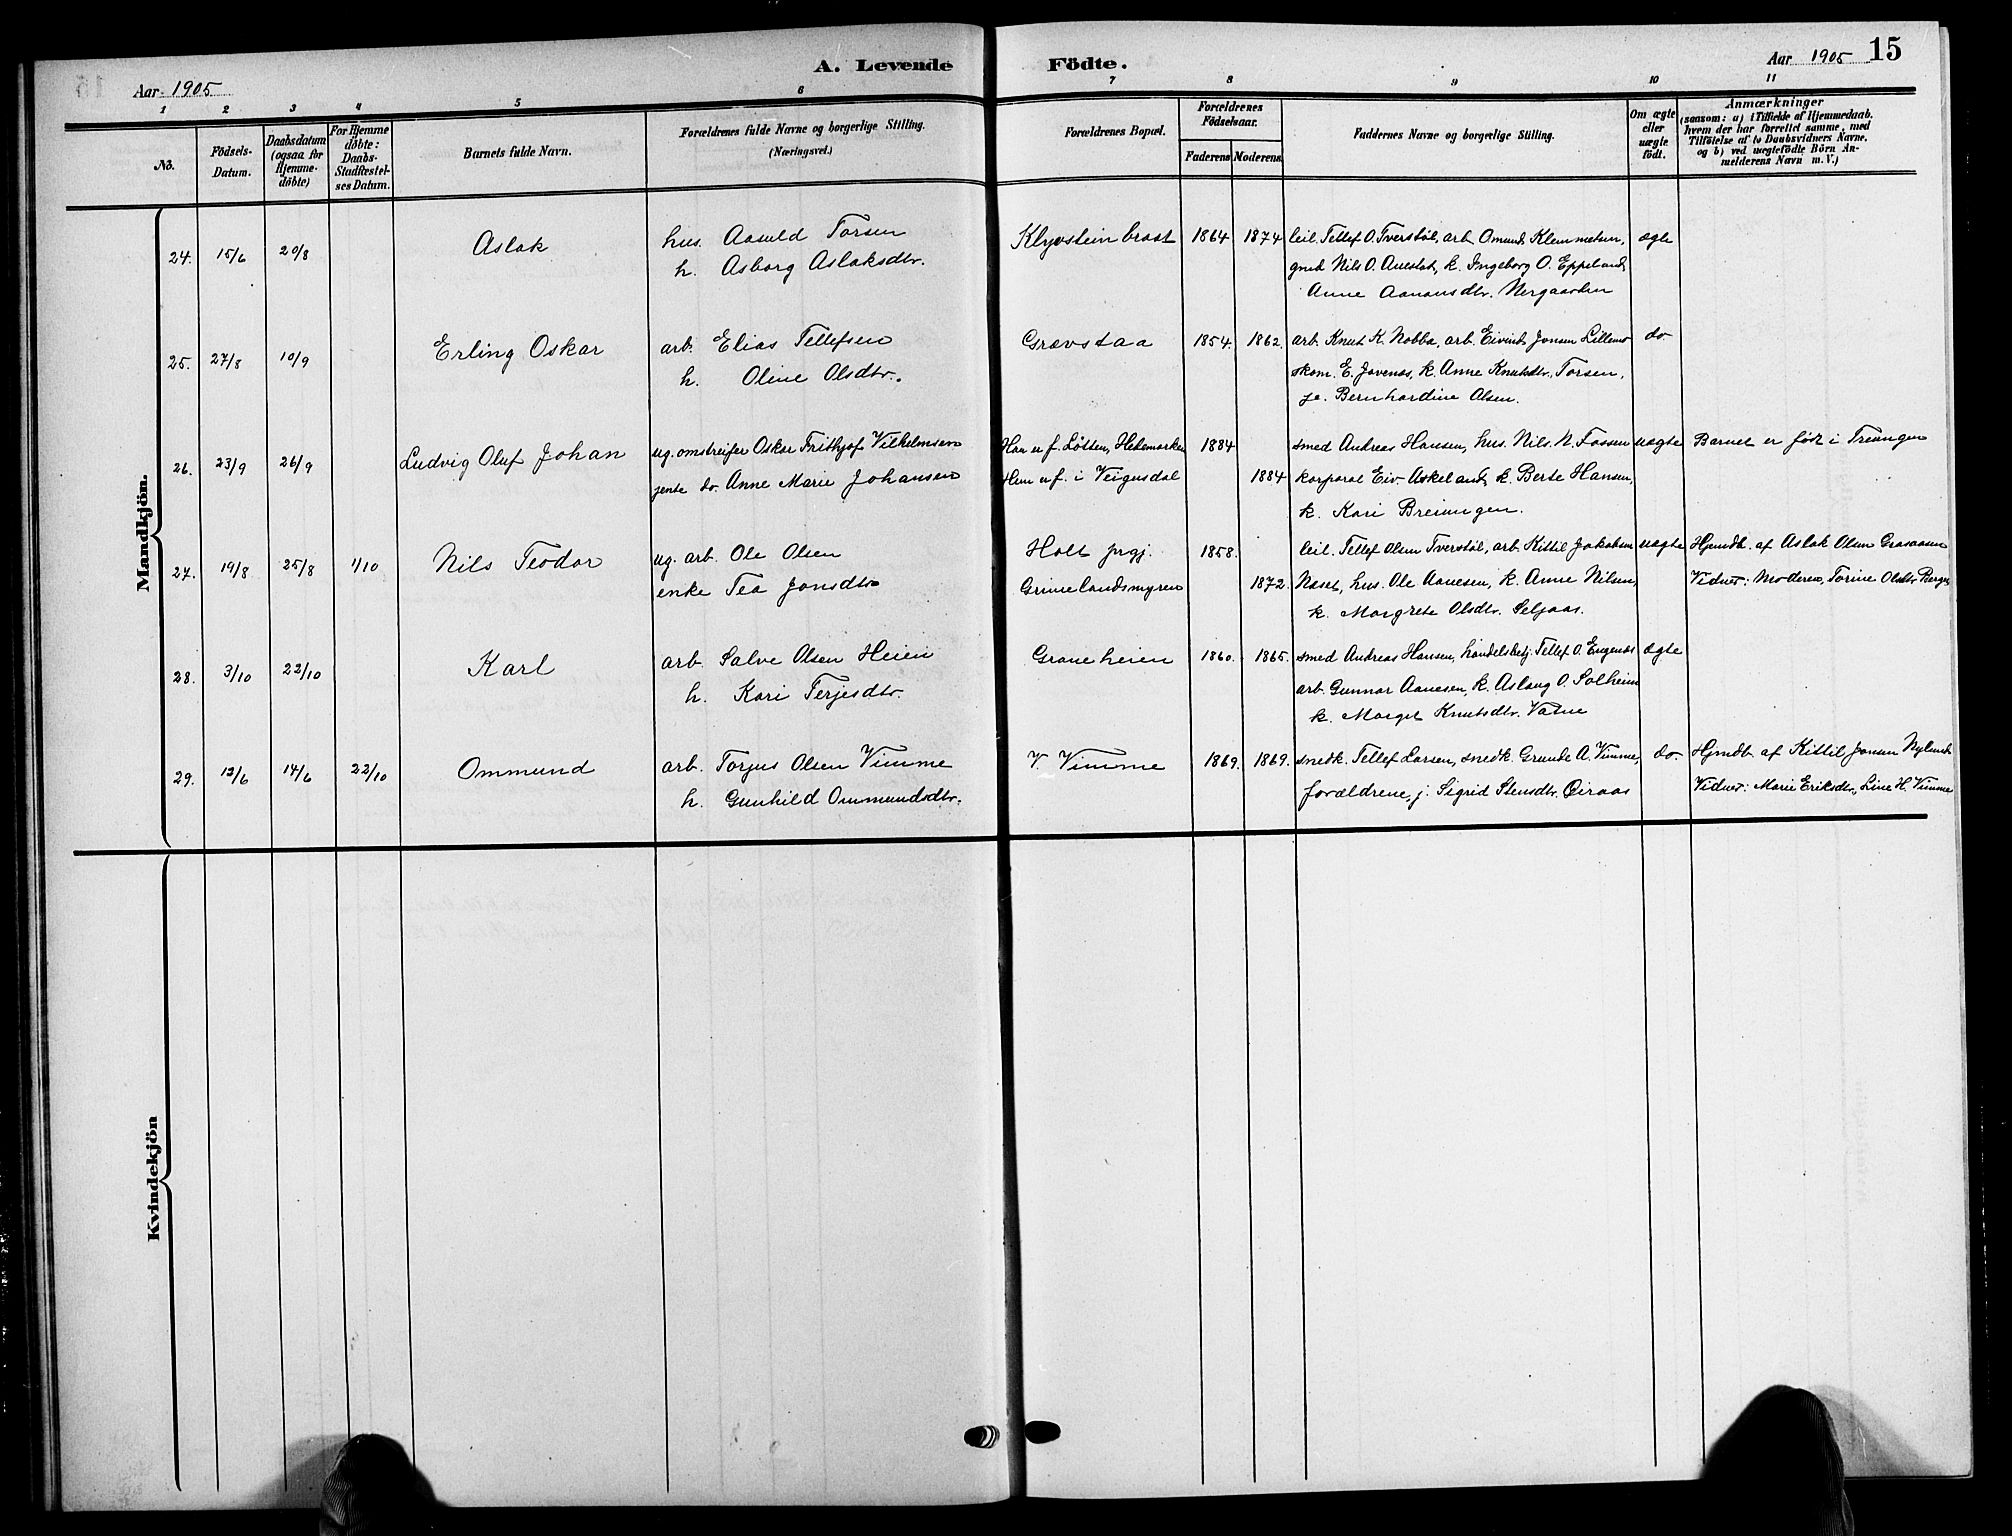 A. Levende Födte.
Aar 1905
Aar 1905 15
1 2 3 4 5 6 7 8 9 10 11
No.
Födsels-Datum.
Daabsdatum (ogsaa for Hjemme-döbte)
For Hjemme döbte: Daabs-Stadfæstel-ses Datum.
Barnets fulde Navn.
Forældrenes fulde Navne og borgerlige Stilling. (Næringsvei.)
Forældrenes Bopæl.
Forældrenes Födselsaar.
Faderens Moderens
Faddernes Navne og borgerlige Stilling.
Om ægte eller uægte födt.
Anmærkninger
(saasom: a) i Tilfælde af Hjemmedaab.
hvem der har forrettet samme, med
Tilföielse af to Daabsvidners Navne,
og b) ved uægtefödte Börn An-
melderens Navn m. V.)
Mandkjön.
24. 15/6 20/8 Aslak hus. Aasuld Torsen Klyvstein braat 1864 1874 leil. Tellef O. Tverstöl, arb. Omund Klemmetsen, ægte
h. Asborg Aslaksdtr. gmd Nils O. k. Ingeborg O. Eppeland
Anne Aanonsdtr. Nergaarden
25. 27/8 10/9 Erling Oskar arb. Elias Tellefsen Grævstaa 1854. 1862. arb. Knut K. Nobba, arb. Eivind Jonsen do.
h. Oline Olsdtr. skom. E. Jovenas, k. Anne Knutsdtr. Torsen,
Bernhardine Olsen.
26. 23/9 26/9 Ludvig Oluf Johan ug. omstreifer Oskar Frithjof Vilhelmsen Han er f. Løtten, Hedemarken 1884 smed Andreas Hansen, hus. Nils N. Fossen uægte Barnet er født i Treungen
jente do. Anne Marie Johansen Hun er f. i Veigusdal 1884 korporal Eiv. Askeland, k. Berte Hansen,
k. Kari Breiungen.
27. 19/8 25/8 1/10 Nils Teodor ug. arb. Ole Olsen Holt prgj. 1858. leil. Tellef Olsen Tverstöl, arb. Kittil Jakobsen uægte Hjemdb. af Aslak Olsen Graaasen
enke Tea Jonsdtr Grimelandsmyren 1872. Næset, hus. Ole Aanesen, k. Anne Nilsen, Vidner: Moderen, Torine Olsdtr
k. Margrete Olsdtr. Seljaas.
28. 3/10 22/10 Karl arb. Salve Olsen Heien Graneheien 1860. 1865. smed Andreas Hansen, handelsbetj. Tellef O. Engenes ægte
h. Kari Terjesdtr. arb. Gunnar Aanesen, k. Aslaug O. Solheim
k. Margit Knutsdtr. Vatne
29. 12/6 14/6 22/10 Ommund arb. Torjus Olsen Vimme V. Vimme 1869. 1869. snedk. Tellef Larsen, snedk. Grunde A. Vimme, do. Hjmdb. af Kittil Jonsen Nylund
h. Gunhild Ommundsdtr. forældrene, j. Sigrid Stensdtr. Öiraas Vidner: Marie Eriksdtr, Line H. Vimme
Kvindekjön